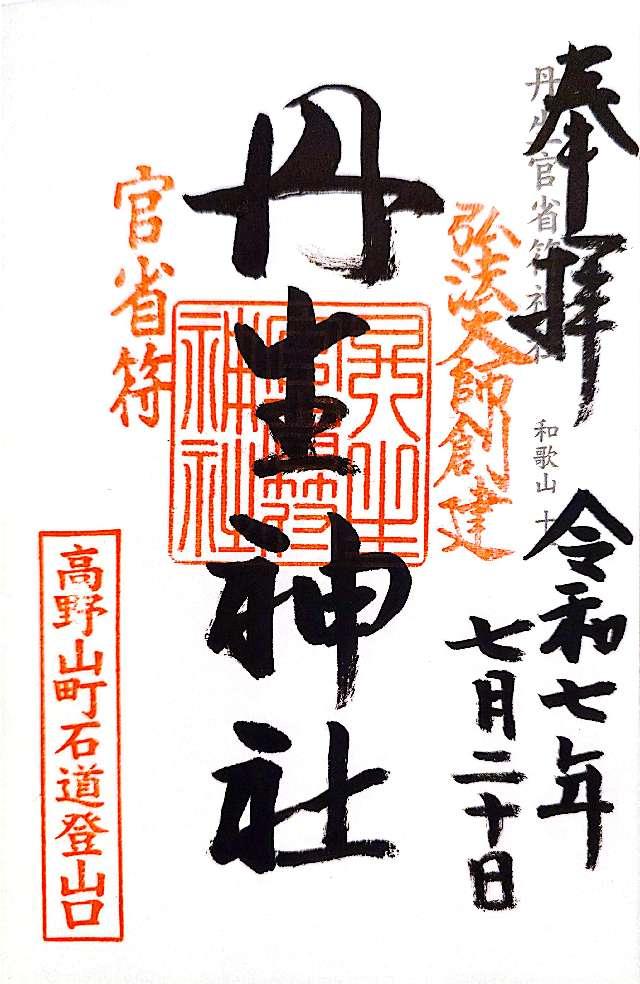 奉拝
丹生官省符神社
和歌山 十
令和七年
七月二十日
弘法大師創建
丹生神社
丹生
官省符
神社
官省符
高野山町石道登山口